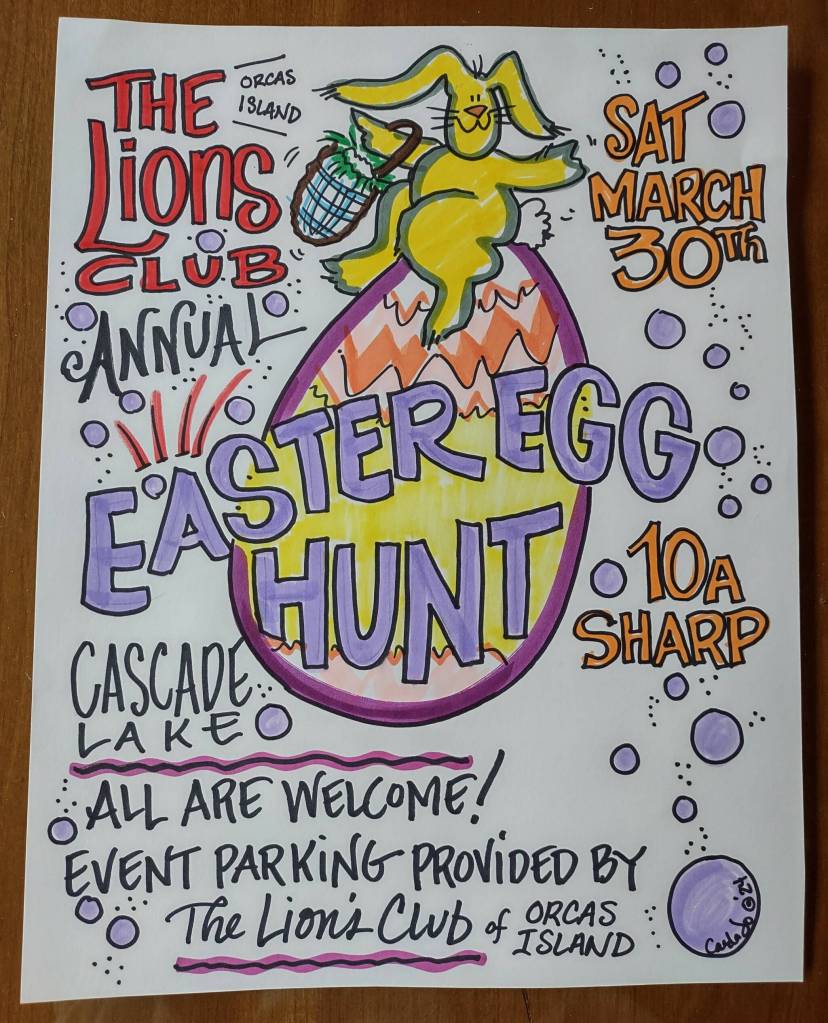 THE
Lions
CLUB
ORCAS
ISLAND
ANNUAL
SAT
MARCH
30Th
EASTER EGG
HUNT
10A
SHARP
CASCADE
LAKE
ALL ARE WELCOME!
EVENT PARKING PROVIDED BY
The Lion's Club of ORCAS
ISLAND
© '24